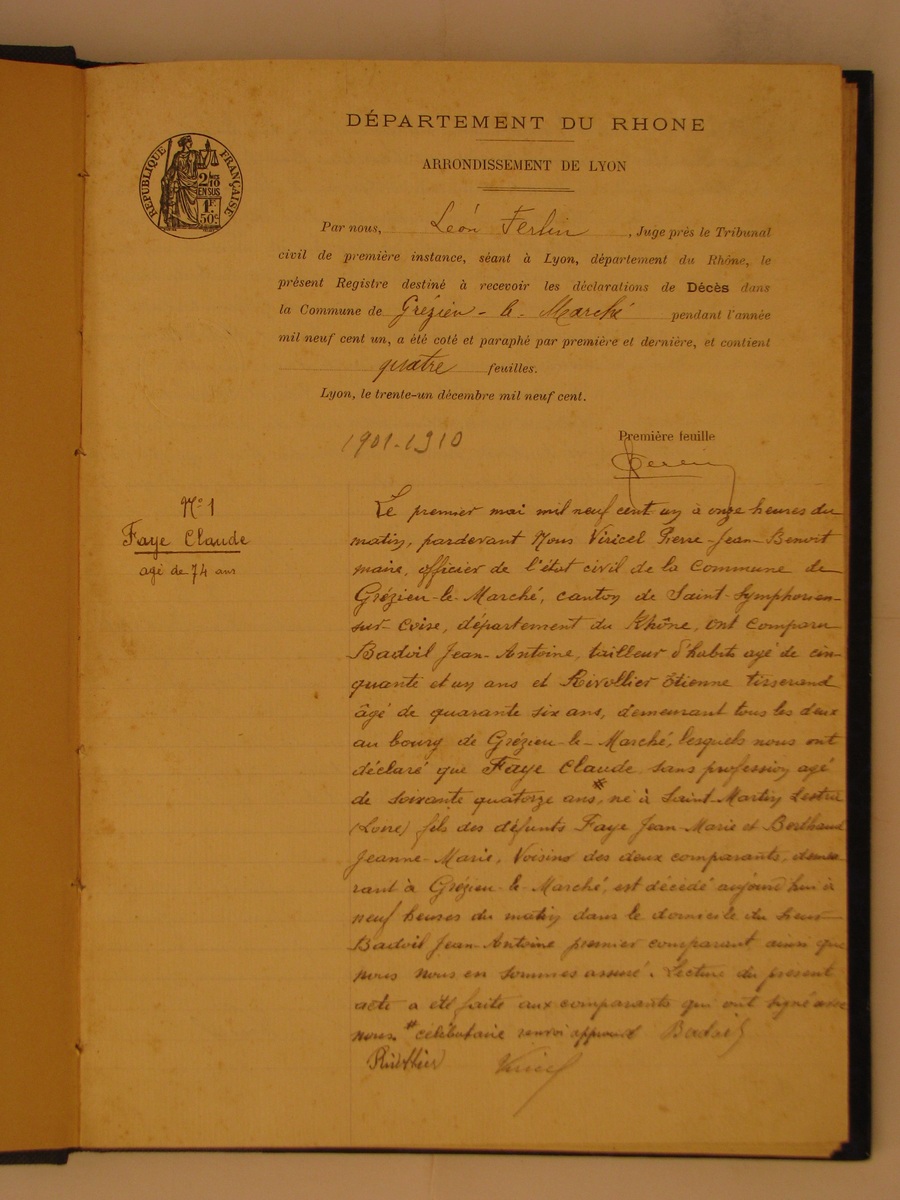 DÉPARTEMENT DU RHONE
ARRONDISSEMENT DE LYON
RÉPUBLIQUE FRANÇAISE
2/10
EN SUS
1F.
50c
Par nous, Léon Ferlin, Juge près le Tribunal
civil de première instance, séant à Lyon, département du Rhône, le
présent Registre destiné à recevoir les déclarations de Décès dans
la Commune de Grézieu-le-Marché pendant l'année
mil neuf cent un, a été coté et paraphé par première et dernière, et contient
quatre feuilles.
Lyon, le trente-un décembre mil neuf cent.
1901-1910
Première feuille
N° 1
Faye Claude
agé de 74 ans
Le premier mai mil neuf cent un à onze heures du
matin, pardevant Nous Viricel Pierre-Jean-Benoit
maire, officier de l'état civil de la Commune de
Grézieu-le-Marché, canton de Saint-Symphorien-
sur-Coise, département du Rhône, ont comparu
Badoil Jean-Antoine, tailleur d'habits agé de cin-
quante et un ans et Rivollier Etienne tisserand
âgé de quarante six ans, demeurant tous les deux
au bourg de Grézieu-le-Marché, lesquels nous ont
déclaré que Faye Claude sans profession agé
de soixante quatorze ans,# né à Saint-Martin Lestra
(Loire) fils des défunts Faye Jean-Marie et Berthaud
Jeanne-Marie, Voisins des deux comparants, demeu-
rant à Grézieu-le-Marché, est décédé aujourd'hui à
neuf heures du matin dans le domicile du sieur
Badoil Jean-Antoine premier comparant ainsi que
nous nous en sommes assuré. Lecture du present
acte a été faite aux comparants qui ont signé avec
nous. # célibataire renvoi approuvé Badoil
Rivollier Viricel